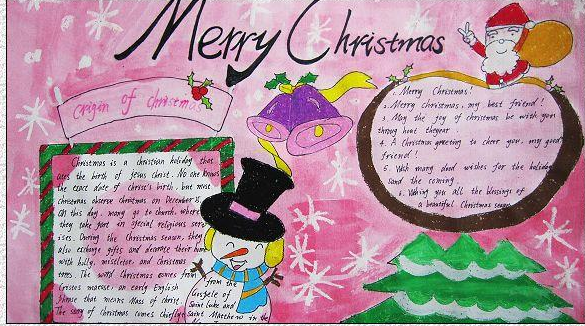 Merry Christmas
origin of christmas
Christmas is a christian holiday that
the birth of Jesus christ. No one knows
the exact date of christ's birth, but most
christmas observe Christmas on December
On this day, many go to church, where
they take part in special religious serv
ices. During the Christmas season, they
also exchange gifts and decorate their
with holly, mistletoe, and Christmas
trees. The word Christmas comes from
an early English
phrase that means Mass of christ
The story of Christmas comes chiefly
from the
Gospels of
Saint Luke and
Saint Matthew in the
1. Merry Christmas!
2. Merry christmas, my best friend!
3. May the joy of christmas be with you
throug hout theyear
4. A Christmas greeting to cheer you, my good
friend!
5. Wish many good wishes for the holiday
and the coming
6. Wishing you all the blessings of
a beautiful Christmas season